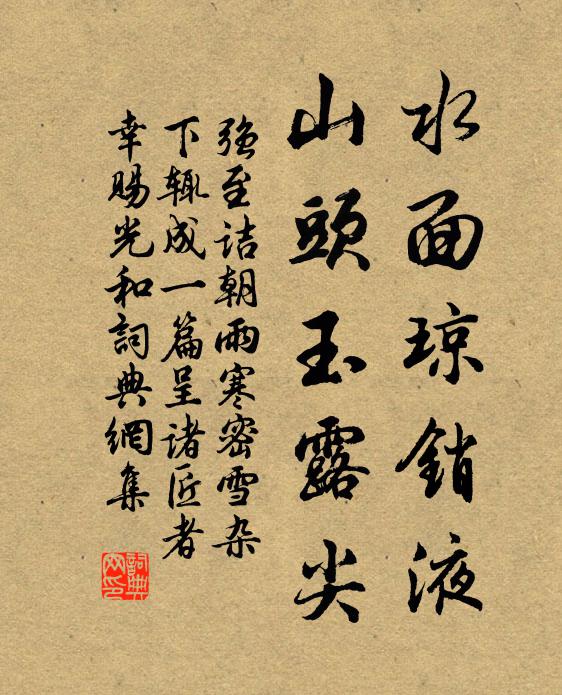 水面琼銷液
山頭玉露尖
强至诘朝雨寒密雪杂
下辄成一篇呈诸匠者
幸赐光和詞典網集
詞典
网印